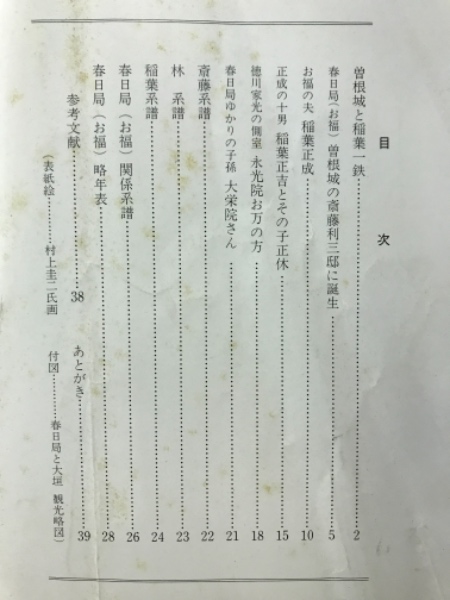 目次
曽根城と稲葉一鉄………2
春日局（お福）曽根城の斎藤利三邸に誕生………5
お福の夫 稲葉正成………10
正成の十男 稲葉正吉とその子正休………15
徳川家光の側室 永光院お万の方………18
春日局ゆかりの子孫 大栄院さん………21
斎藤系譜………22
林 系譜………23
稲葉系譜………24
春日局（お福）関係系譜………26
春日局（お福）略年表………28
参考文献………38
あとがき………39
（表紙絵………村上圭二氏画
付図………春日局と大垣 観光略図）